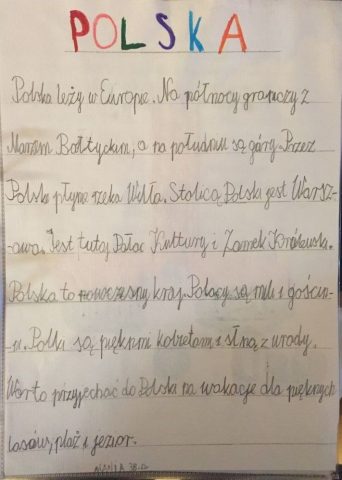 POLSKA
Polska leży w Europie. Na północy graniczy z
Morzem Bałtyckim, a na południu są góry. Przez
Polskę płynie rzeka Wisła. Stolicą Polski jest Warsz-
-awa. Jest tutaj Pałac Kultury i Zamek Królewski.
Polska to nowoczesny kraj. Polacy są mili i gościn-
ni. Polki są pięknmi kobietami i słyną z urody.
Warto przyjechać do Polski na wakacje dla pięknych
lasów, plaż i jezior.